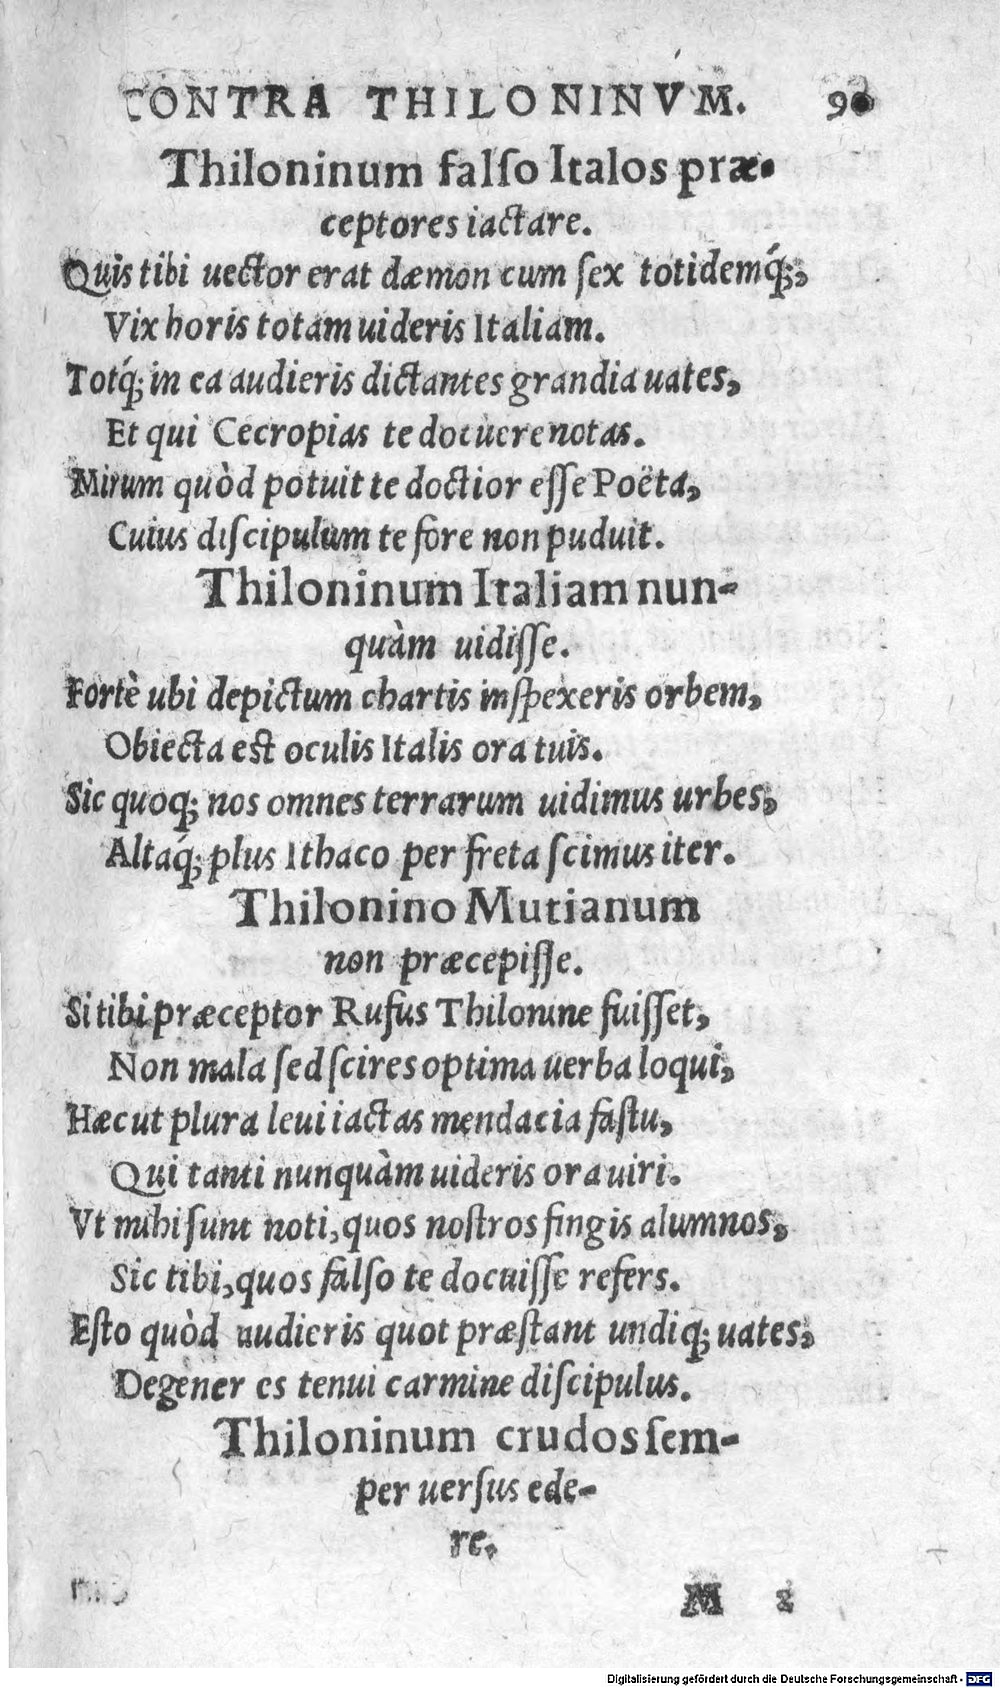 CONTRA THILONINVM. 90
Thiloninum falſo Italos præ-
ceptores iactare.
Quis tibi uector erat dæmon cum ſex totidemq́;,
Vix horis totam uideris Italiam.
Totq́; in ea audieris dictantes grandia uates,
Et qui Cecropias te docuere notas.
Mirum quòd potuit te doctior eſſe Poëta,
Cuius diſcipulum te fore non puduit.
Thiloninum Italiam nun-
quàm uidiſſe.
Fortè ubi depictum chartis inſpexeris orbem,
Obiecta est oculis Italis ora tuis.
Sic quoq; nos omnes terrarum uidimus urbes,
Altaq́; plus Ithaco per freta ſcimus iter.
Thilonino Mutianum
non præcepiſſe.
Si tibi præceptor Rufus Thilonine fuiſſet,
Non mala ſed ſcires optima uerba loqui,
Hæc ut plura leui iactas mendacia faſtu,
Qui tanti nunquàm uideris ora uiri.
Vt mihi ſunt noti, quos noſtros fingis alumnos,
Sic tibi, quos falſo te docuiſſe refers.
Eſto quòd audieris quot præſtant undiq; uates,
Degener es tenui carmine diſcipulus.
Thiloninum crudos ſem-
per uerſus ede-
re.
M 2
Digitalisierung gefördert durch die Deutsche Forschungsgemeinschaft - DFG